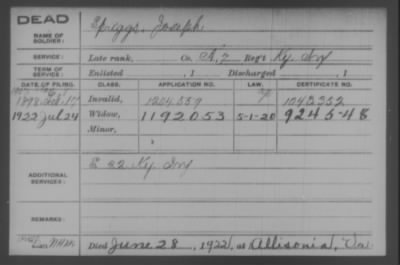 DEAD
NAME OF SOLDIER: Spriggs, Joseph
SERVICE: Late rank, Co. A, 7 Reg't Ky. Inf
TERM OF SERVICE: Enlisted , 1 Discharged , 1
DATE OF FILING. CLASS. APPLICATION NO. LAW. CERTIFICATE NO.
1898 Invalid, 1204559
1922 Jul 24 Widow, 1192053 5-1-20 924548
Minor,
ADDITIONAL SERVICES: E 22 Ky. Inf
REMARKS:
Died June 28, 1922, at Allisonia, Va